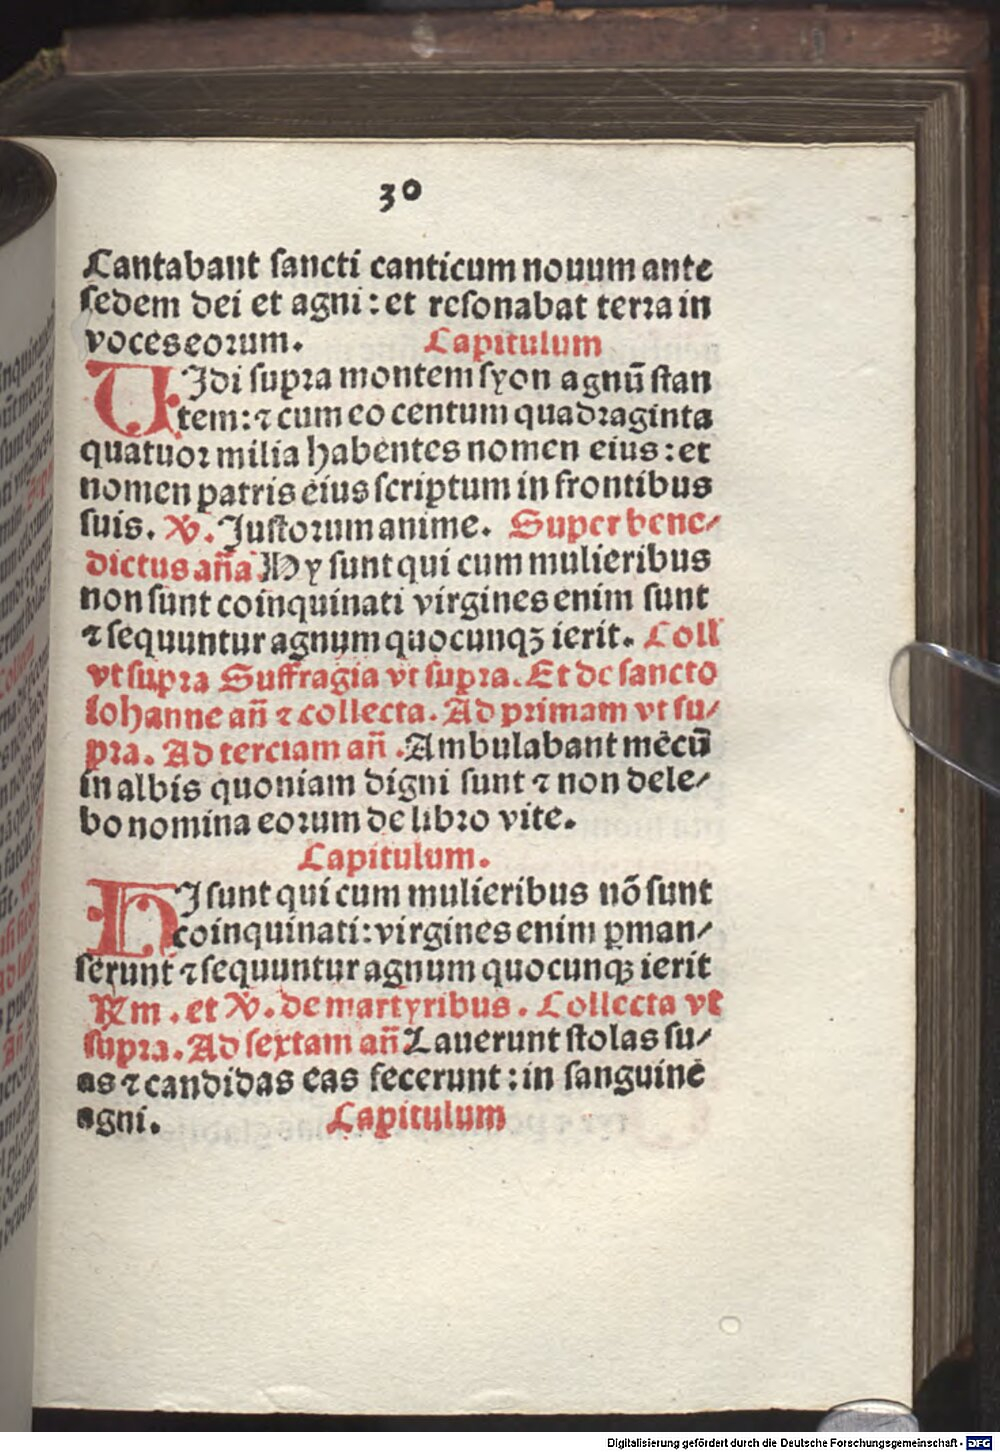 30
Cantabant sancti canticum nouum ante
sedem dei et agni: et resonabat terra in
voces eorum. Capitulum
UIdi supra montem syon agnū stan
tem: ⁊ cum eo centum quadraginta
quatuor milia habentes nomen eius: et
nomen patris eius scriptum in frontibus
suis. ℣. Justorum anime. Super bene⸗
dictus aña Hy sunt qui cum mulieribus
non sunt coinquinati virgines enim sunt
⁊ sequuntur agnum quocunqꝫ ierit. Coll
vt supra Suffragia vt supra. Et de sancto
Iohanne añ ⁊ collecta. Ad primam vt su⸗
pra. Ad terciam añ. Ambulabant mēcū
in albis quoniam digni sunt ⁊ non dele⸗
bo nomina eorum de libro vite.
Capitulum.
HI sunt qui cum mulieribus nō sunt
coinquinati: virgines enim ꝑman⸗
serunt ⁊ sequuntur agnum quocunqꝫ ierit
℞m. et ℣. de martyribus. Collecta vt
supra. Ad sextam añ Lauerunt stolas su⸗
as ⁊ candidas eas fecerunt: in sanguinē
agni. Capitulum
Digitalisierung gefördert durch die Deutsche Forschungsgemeinschaft - DFG